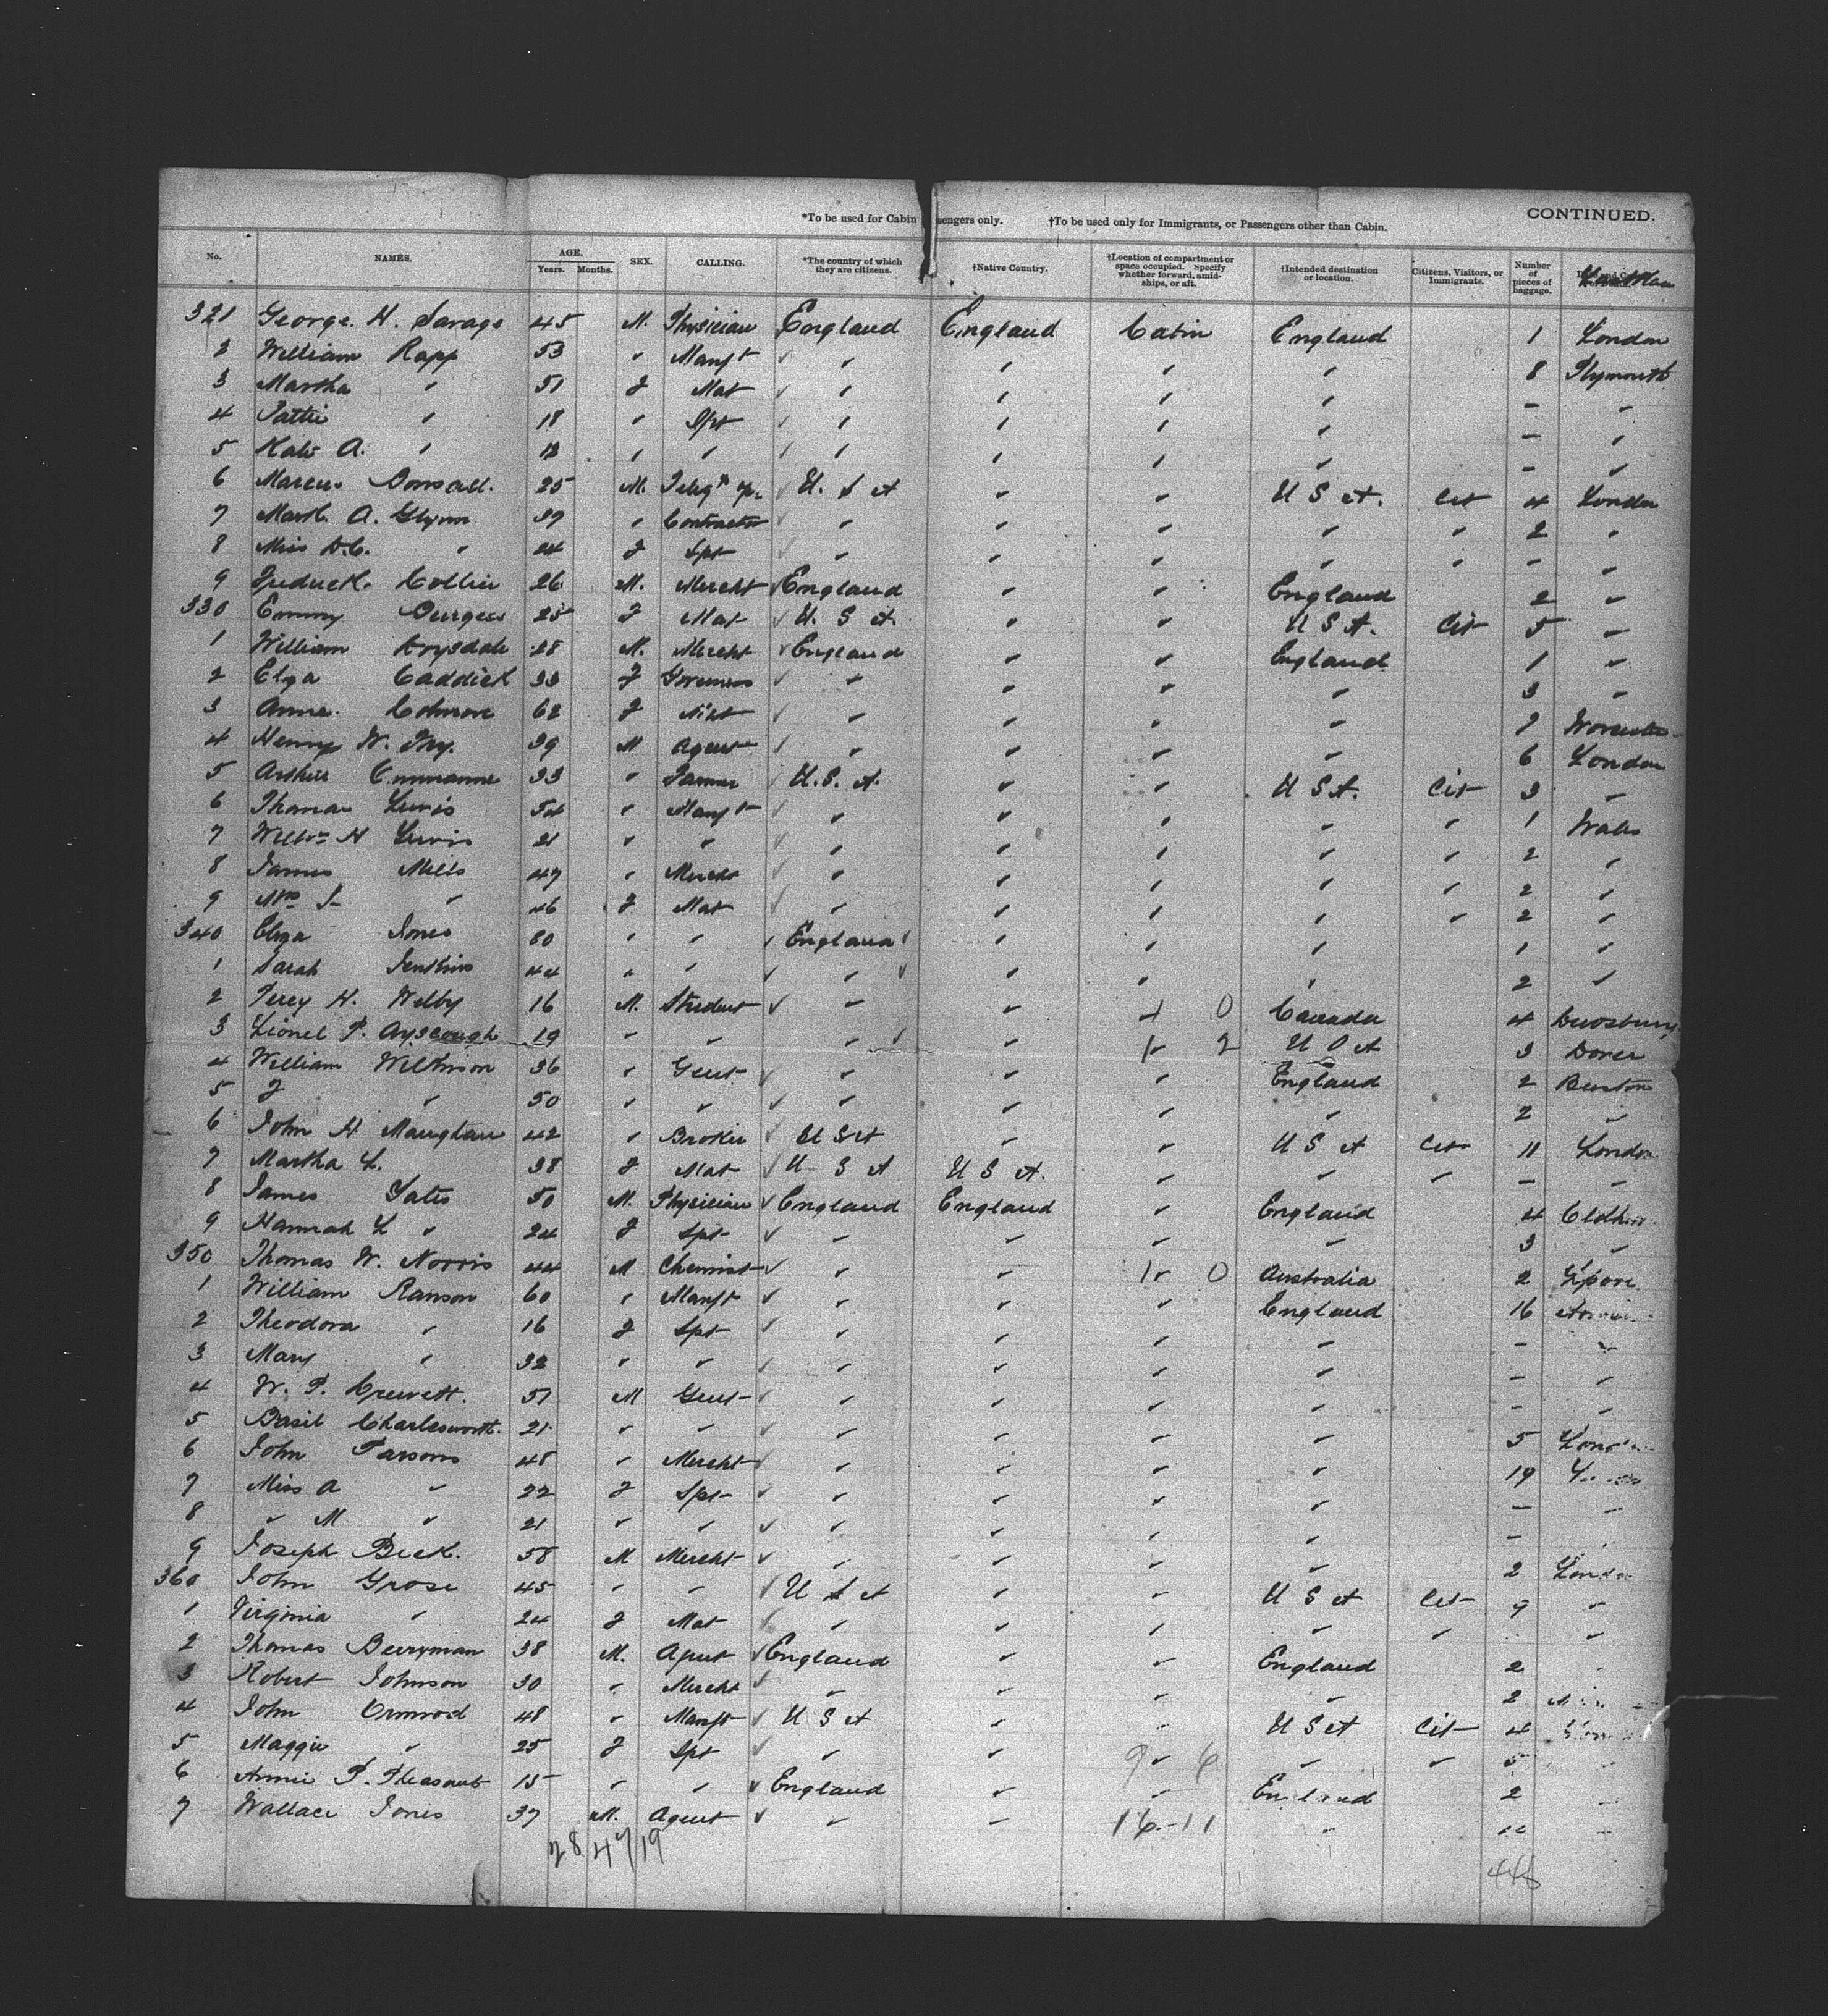 CONTINUED.
*To be used for Cabin sengers only. †To be used only for Immigrants, or Passengers other than Cabin.
No. NAMES. AGE. Years. Months. SEX. CALLING. *The country of which they are citizens. †Native Country. †Location of compartment or space occupied. Specify whether forward, amidships, or aft. †Intended destination or location. Citizens, Visitors, or Immigrants. Number of pieces of baggage.
321 George. H. Savage 45 M. Physician England England Cabin England 1 London
2 William Rapp 53 " Manft " " " " 8 Plymouth
3 Martha " 51 F Mat " " " " – "
4 Pattie " 18 " Spt " " " " – "
5 Kate A. " " " " " " " – "
6 Marcus 25 M. U. S A " " U S A. Cit 4 London
7 Mark. A. Glynn 37 " Contractor " " " " " 2 "
8 Miss " 24 F Spt " " " " " – "
9 Frederick. Collier 26 M. Mercht England " " England 2 "
330 Emmy Burgess 25 F Mat U. S A. " " U S A. Cit 5 "
1 William Drysdale 28 M. Mercht England " " England 1 "
2 Eliza Caddick 33 F Governess " " " " 3 "
3 Anne. 62 F " " " " 7 Worcester
4 Henry W. Fry. 39 M Agent " " " " 6 London
5 Arthur 33 " Farmer U. S. A. " " U S A. Cit 3 "
6 Thomas Lewis 54 " Manft " " " " " 1 Wales
7 H Lewis 21 " " " " " " " 2 "
8 James Mills 47 " Mercht " " " " " 2 "
9 Mrs J– " 46 F Mat " " " " " 2 "
340 Eliza Jones 60 " " England " " " 1 "
1 Sarah Jenkins 44 " " " " " " 2 "
2 Percy H. Welby 16 M. Student " " 1 0 Canada 4 Dewsbury
3 Lionel P. Ayscough 19 " " " " 1 " 2 U S A 3 Dover
4 William Wilkinson 36 " Gent " " " England 2 Burton
5 J " 50 " " " " " " 2 "
6 John H Maughan 42 " Broker U S A " " U S A Cit 11 London
7 Martha L. 38 F Mat U S A U S A. " " " – "
8 James Yates 50 M. Physician England England " England 4 Oldham
9 Hannah L " 24 F Spt " " " " 3 "
350 Thomas W. Norris 44 M Chemist " " 1 " 0 Australia 2 L'pool
1 William Ranson 60 " Manft " " " England 16
2 Theodora " 16 F Spt " " " " – "
3 Mary " 32 " " " " " " – "
4 W. P. 51 M Gent " " " " – "
5 Basil Charlesworth. 21 " " " " " " 5 London
6 John Parsons 48 " Mercht " " " " 19
7 Miss A " 22 F Spt " " " " – "
8 " M " 21 " " " " " " –
9 Joseph Beck. 58 M Mercht " " " " 2 London
360 John Grose 45 " " U S A " " U S A Cit 9 "
1 Virginia " 24 F Mat " " " " " "
2 Thomas Berryman 38 M. Agent England " " England 2
3 Robert Johnson 30 " Mercht " " " " 2
4 John Ormrod 48 " Manft U S A " " U S A Cit 4
5 Maggie " 25 F Spt " " 9 " 6 " " 5
6 Annie P. Pleasant 15 " " England " " England 2
7 Wallace Jones 37 M. Agent " " 16.–11 "
28 47 19
446